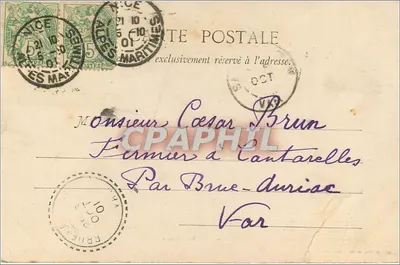 NICE
21 10
5 -10
01
ALPES MARITIMES
NICE
21 10
5 -10
01
ALPES MARITIMES
TE POSTALE
exclusivement réservé à l'adresse.
OCT
VAR
Monsieur Cæsar Brun
Fermier à Cantarelles
Par Brue-Auriac
Var
CPAPHIL
OCT
01
VAR